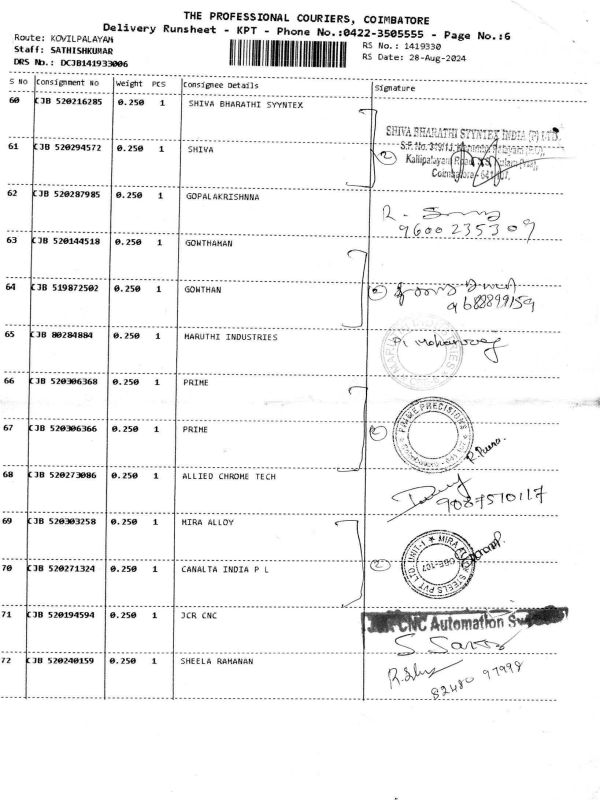 THE PROFESSIONAL COURIERS, COIMBATORE
Delivery Runsheet - KPT - Phone No.:0422-3505555 - Page No.:6
Route: KOVILPALAYAM
Staff: SATHISHKUMAR
DRS No.: DCJB141933006
RS No.: 1419330
RS Date: 28-Aug-2024
S NO Consignment NO Weight PCS Consignee Details Signature
60 CJB 520216285 0.250 1 SHIVA BHARATHI SYYNTEX
SHIVA BHARATHI SYNTEX INDIA (P) LTD.
61 CJB 520294572 0.250 1 SHIVA
2
Coimbatore - 641 107.
62 CJB 520287985 0.250 1 GOPALAKRISHNNA
R.
9600235309
63 CJB 520144518 0.250 1 GOWTHAMAN
64 CJB 519872502 0.250 1 GOWTHAN
2
9688899159
65 CJB 80284884 0.250 1 MARUTHI INDUSTRIES
66 CJB 520306368 0.250 1 PRIME
67 CJB 520306366 0.250 1 PRIME
2
PRIME PRECISIONS
68 CJB 520273086 0.250 1 ALLIED CHROME TECH
9087510117
69 CJB 520303258 0.250 1 MIRA ALLOY
70 CJB 520271324 0.250 1 CANALTA INDIA P L
2
MIRA ALLOY STEELS PVT LTD, UNIT-1
CBE-107
71 CJB 520194594 0.250 1 JCR CNC
CNC Automation
72 CJB 520240159 0.250 1 SHEELA RAMANAN
82480 97998